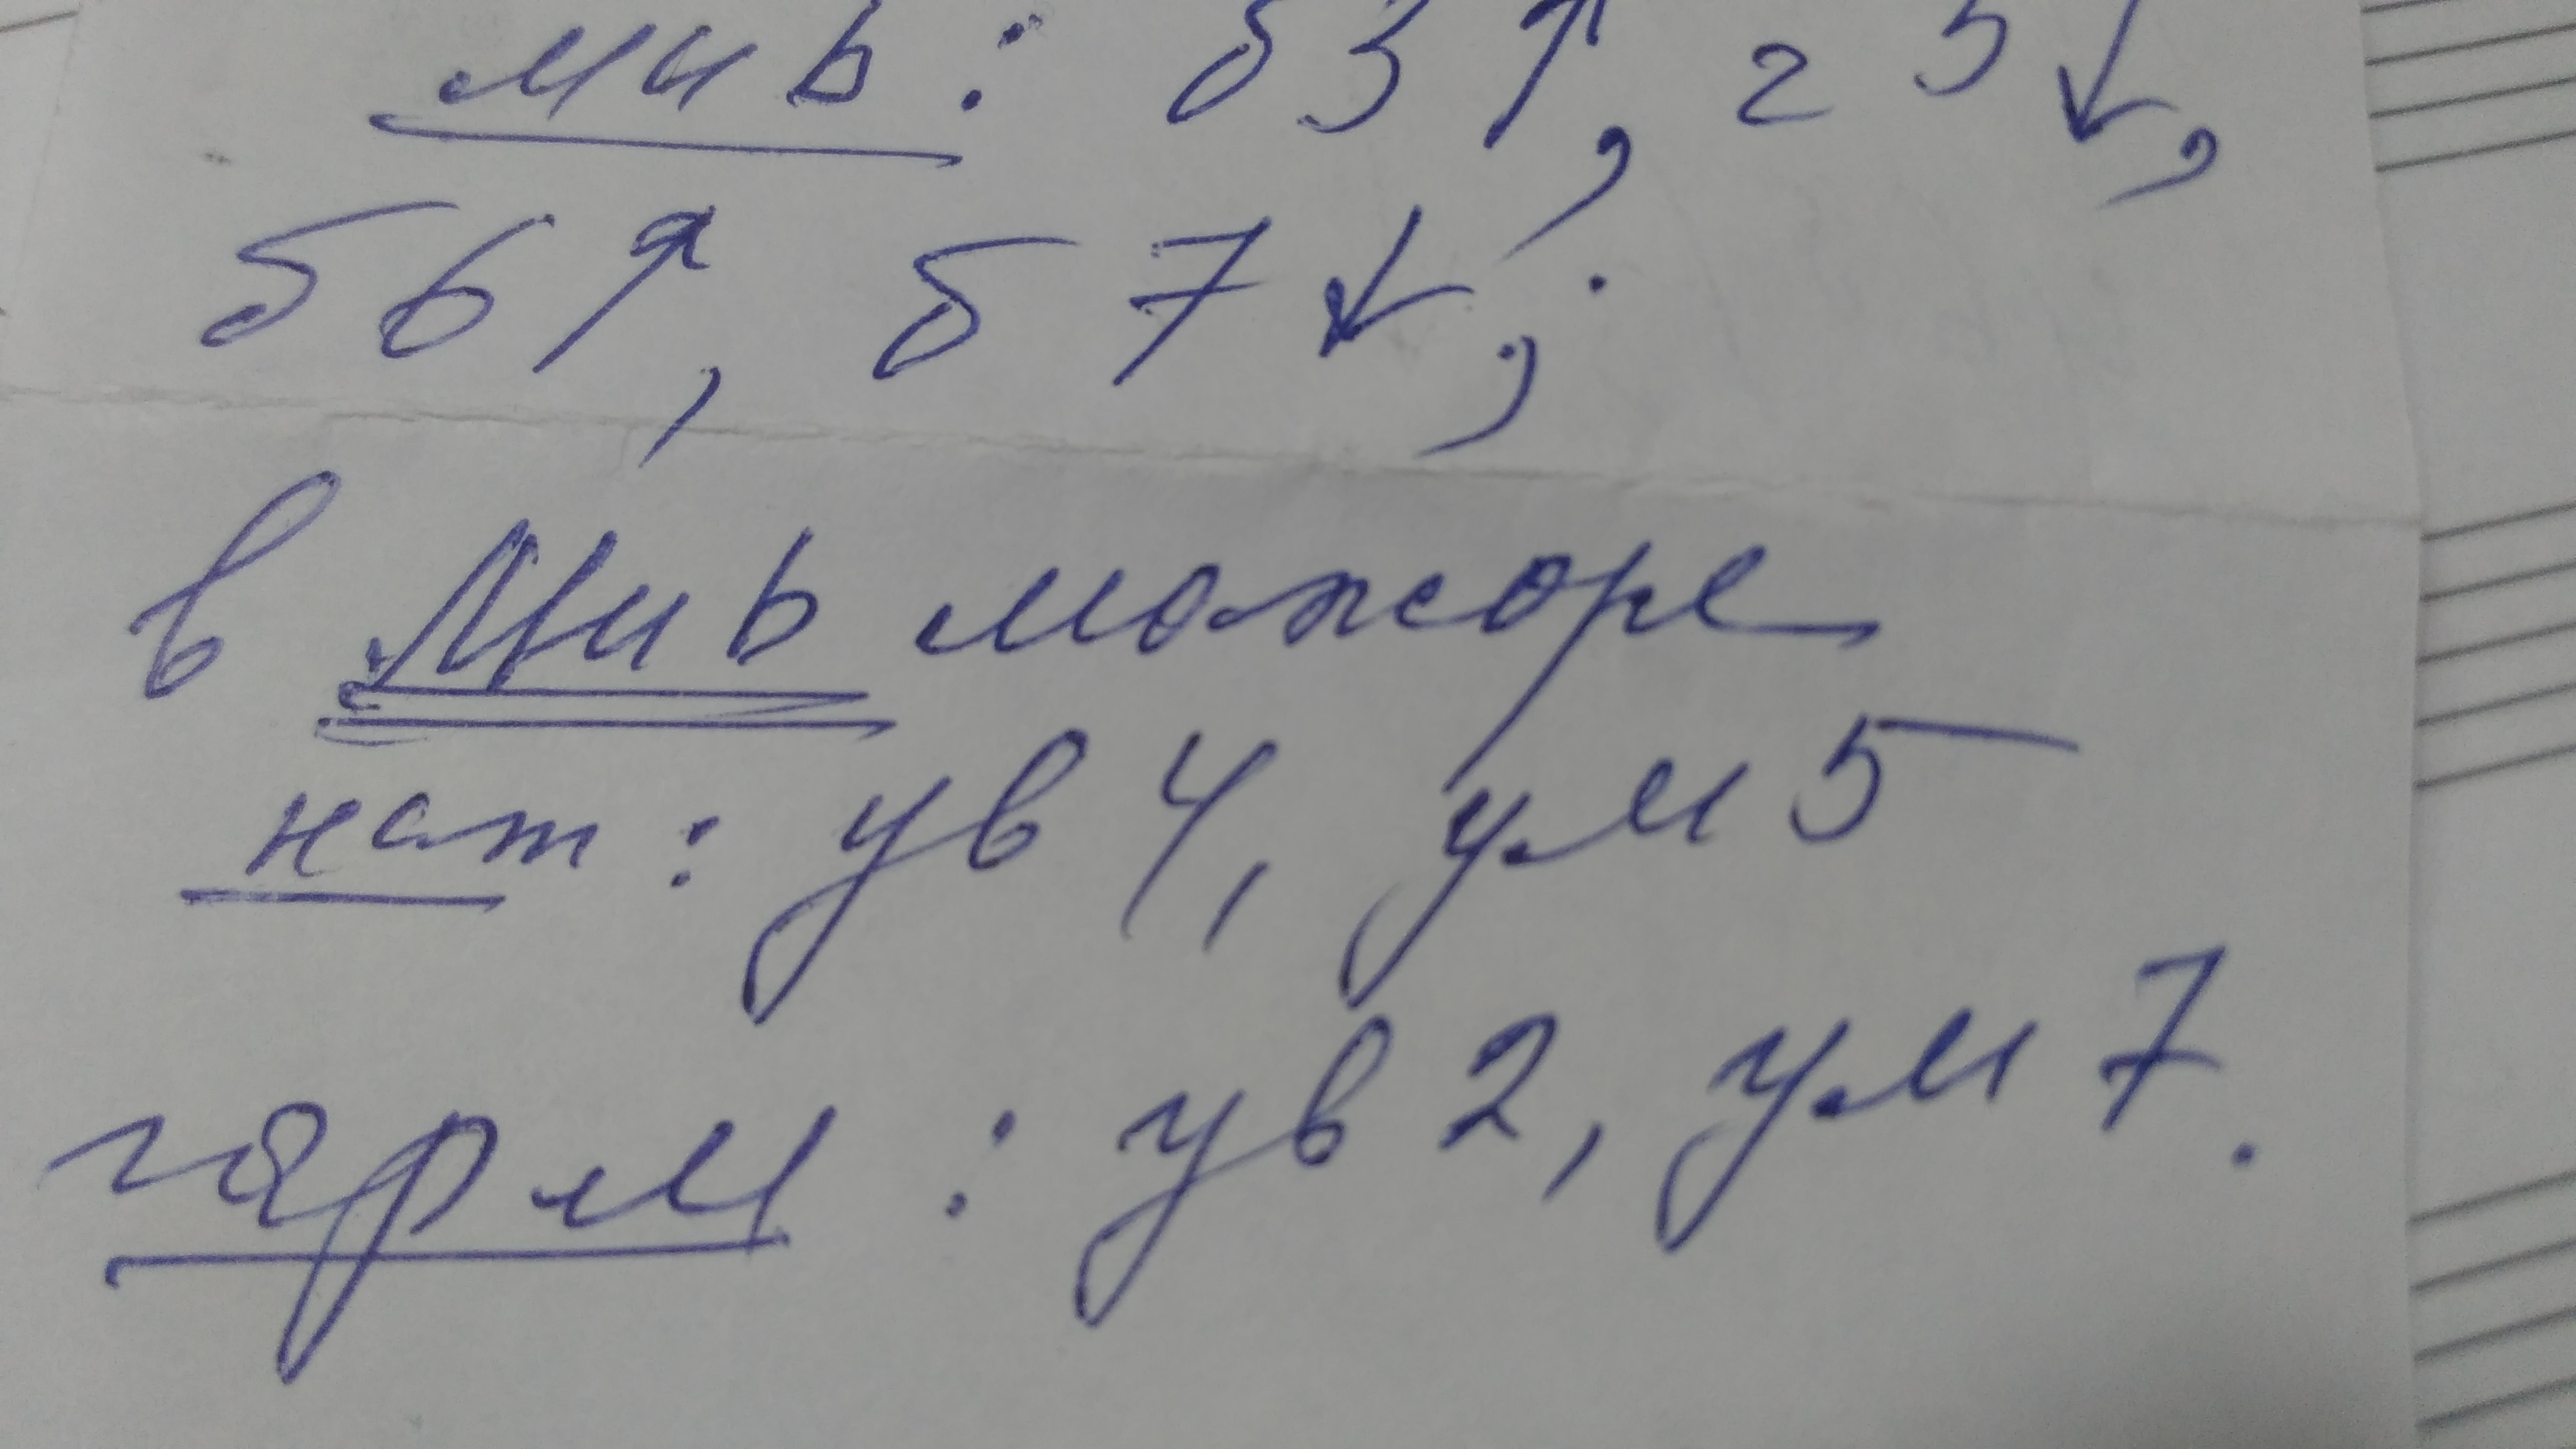 ми♭: б3↑, ч5↓,
б6↑, б7↓;
в Ми♭ мажоре
нат: ув4, ум5
гарм: ув2, ум7.